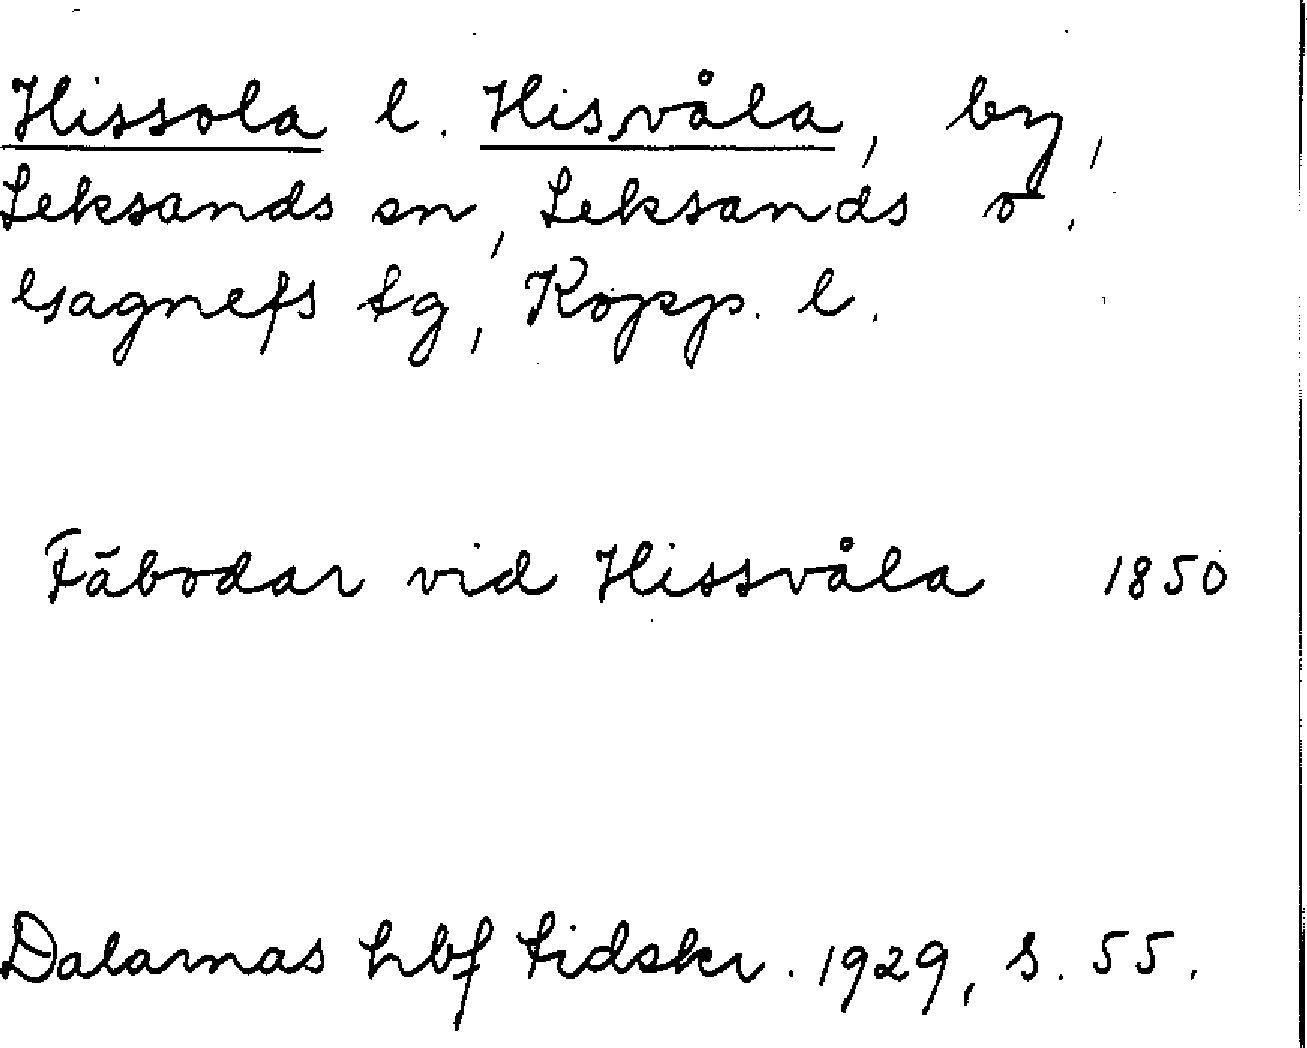 Hissola l. Hisvåla, by,
Leksands sn, Leksands o.
Gagnefs tg, Kopp. l.
Fäbodar vid Hissvåla 1850
Dalarnas hbf tidskr. 1929, s. 55.